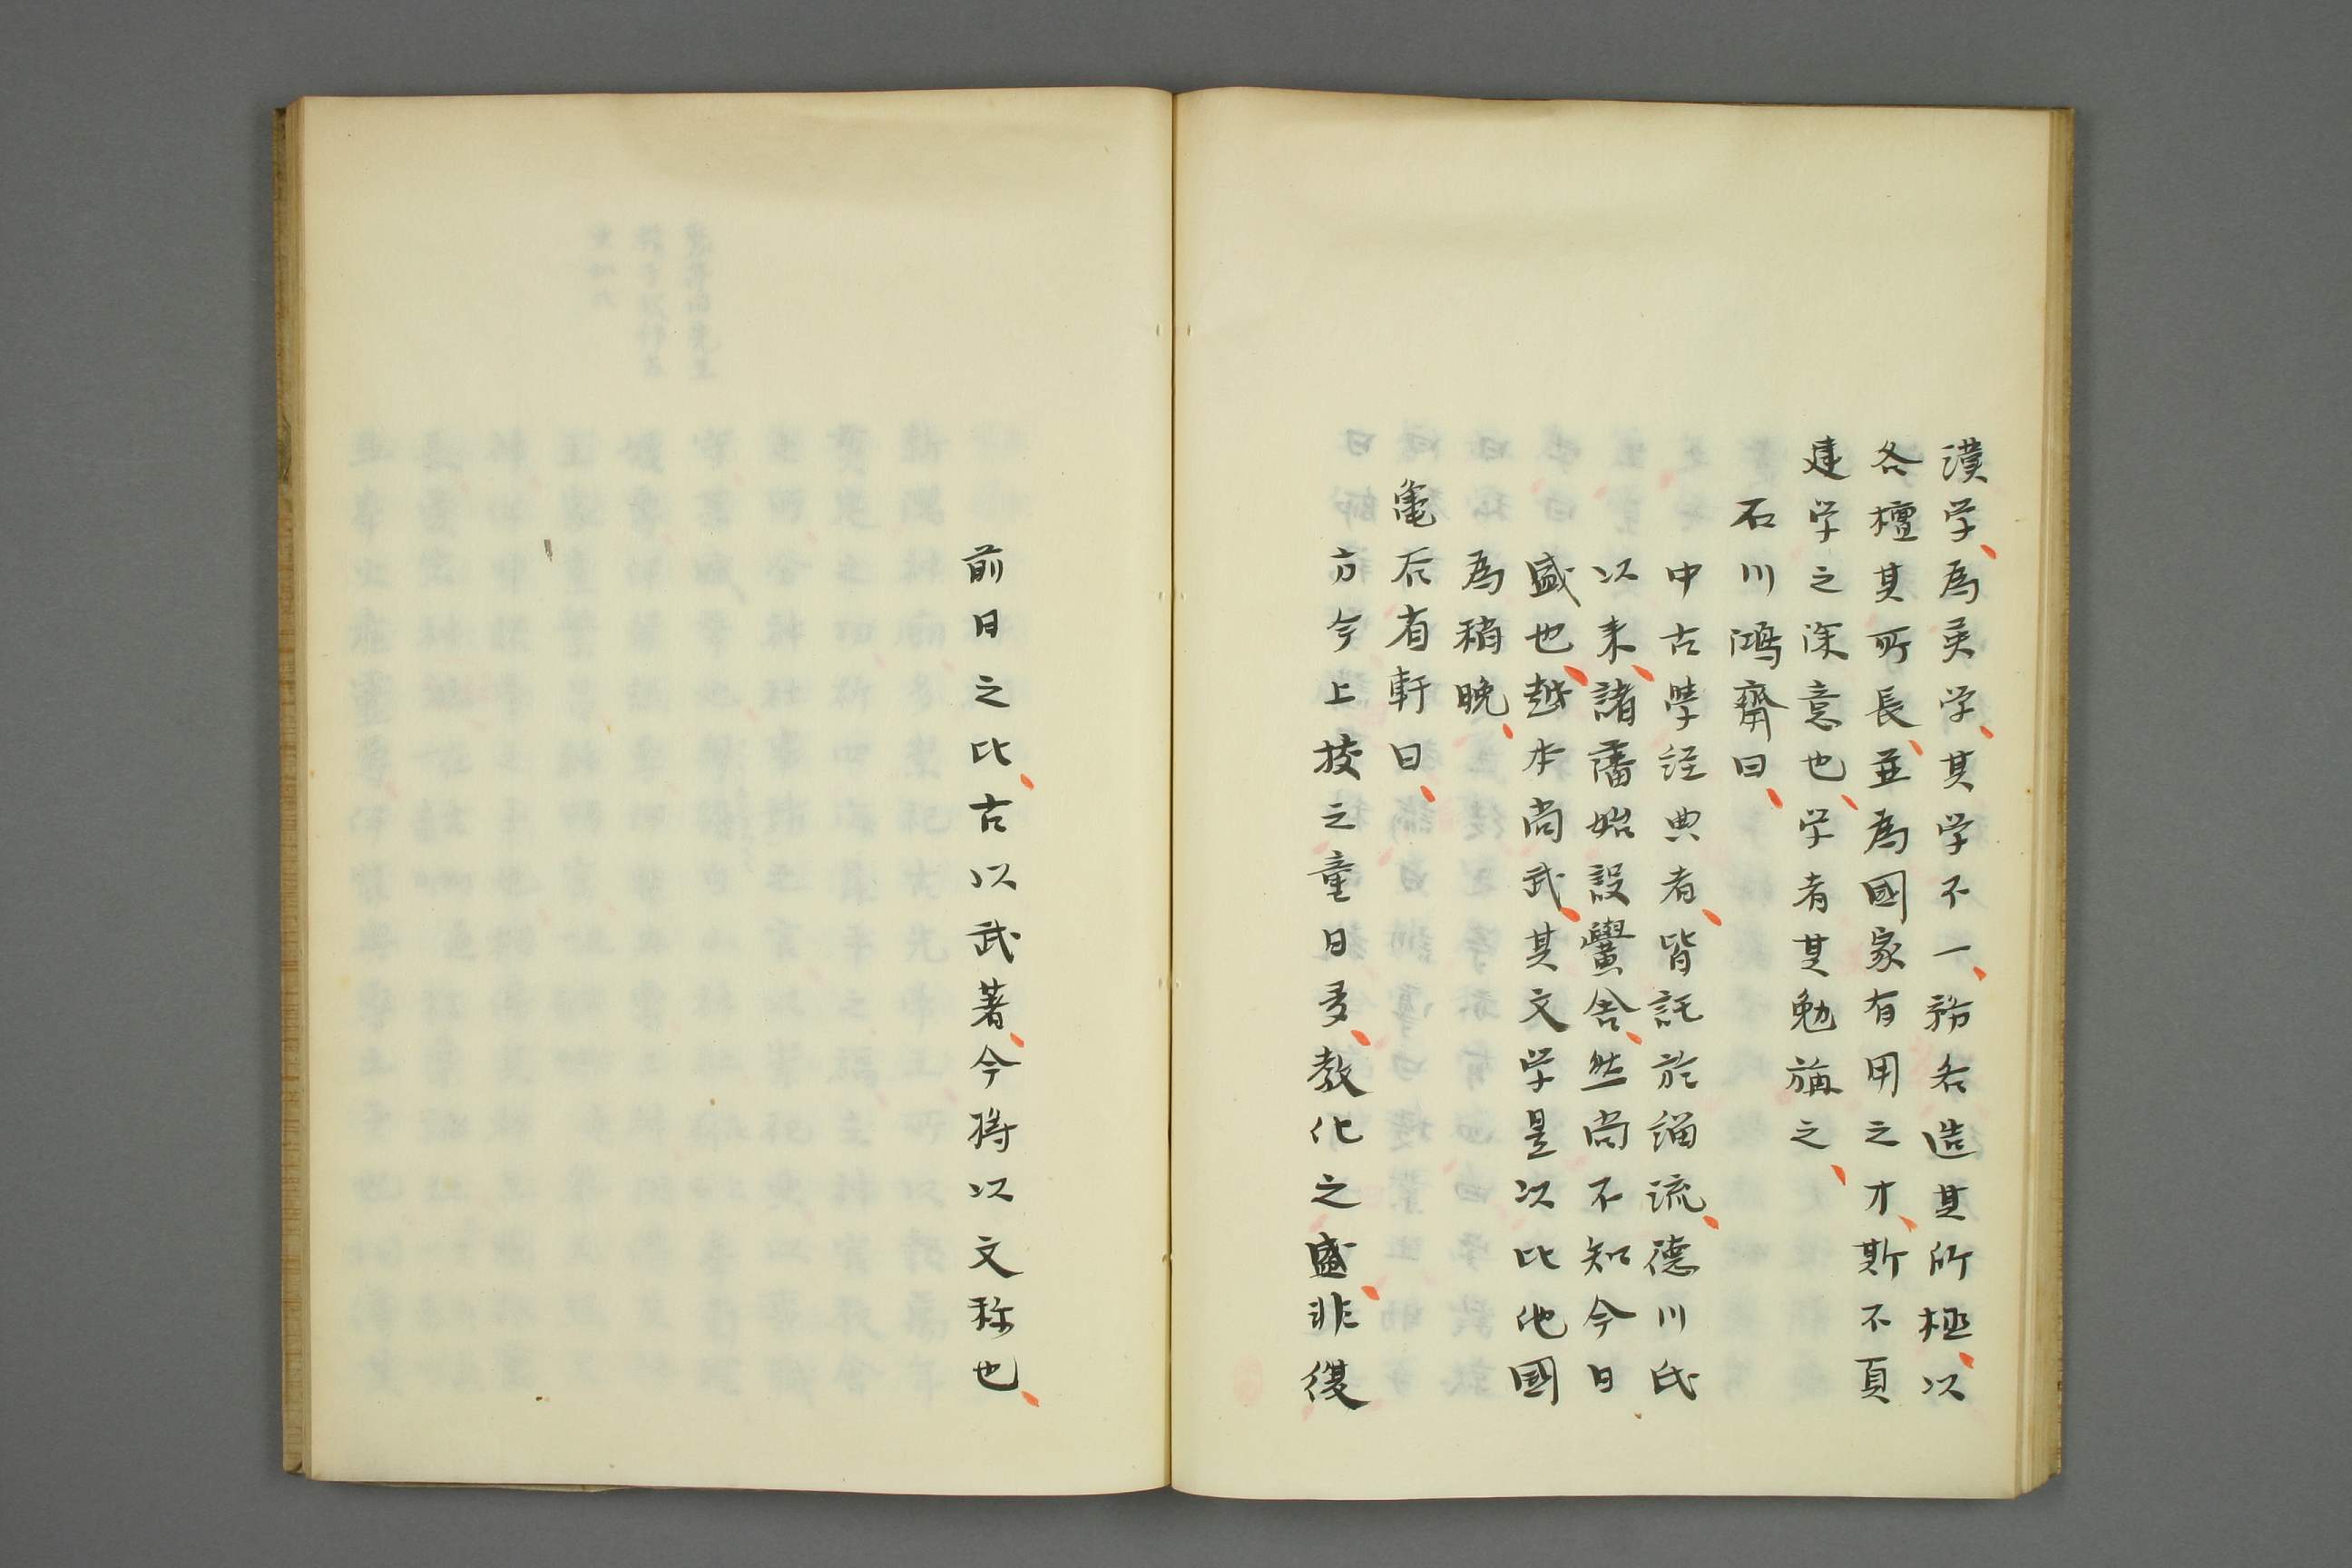 漢学、為英学、其学不一、務各造其所極、以
各檀其所長、並為國家有用之才、斯不頁
建学之深意也、学者其勉旃之、
石川鴻齋曰、
中古學経典者、皆託於緇流、德川氏
以来、諸藩始設黌舎、然尚不知今日
盛也、越本尚武、其文学是以比他國
為稍晩、
亀谷省軒曰、
方今上挍之童日多、教化之盛、非復
前日之比、古以武著、今将以文称也、